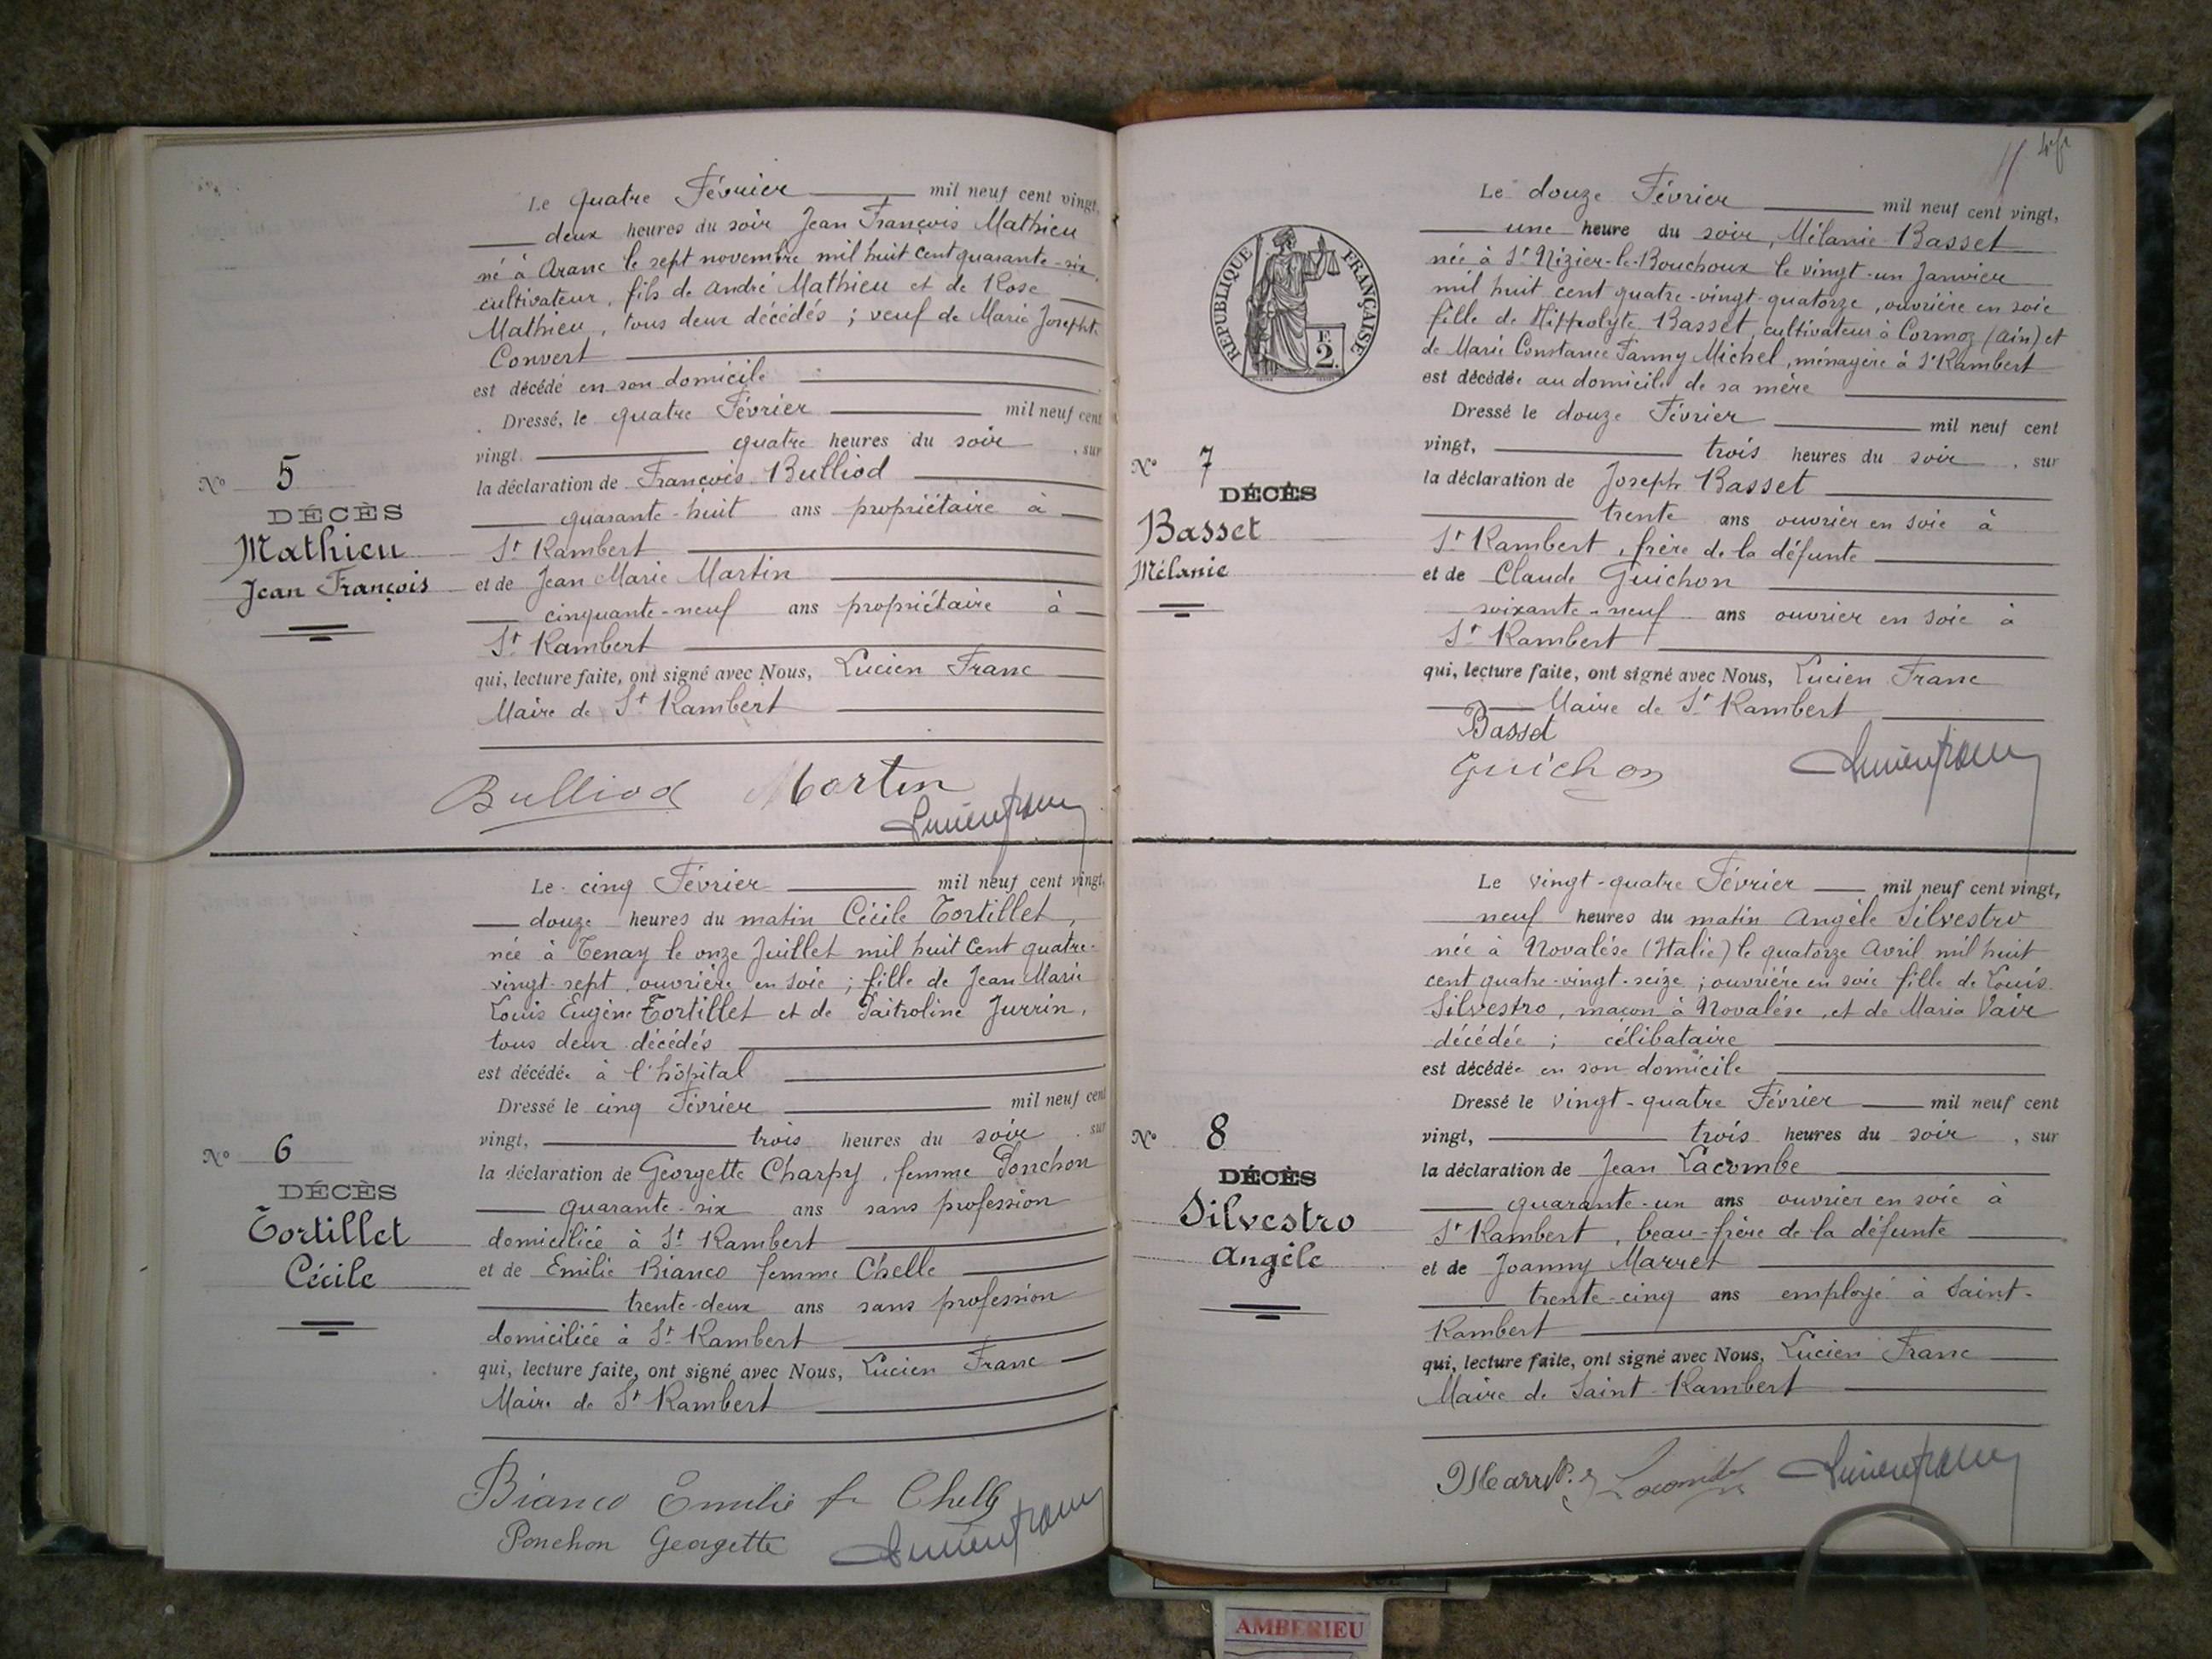 Le quatre Février mil neuf cent vingt,
deux heures du soir Jean François Mathieu
né à Aranc le sept novembre mil huit cent quarante-six,
cultivateur, fils de André Mathieu et de Rose
Mathieu, tous deux décédés ; veuf de Marie Josephte
Convert
est décédé en son domicile
Dressé, le quatre Février mil neuf cent
vingt. quatre heures du soir, sur
la déclaration de François Bulliod
quarante-huit ans propriétaire à
St Rambert
et de Jean Marie Martin
cinquante-neuf ans propriétaire à
St Rambert
qui, lecture faite, ont signé avec Nous, Lucien Franc
Maire de St Rambert
No 5
DÉCÈS
Mathieu
Jean François
Bulliod Martin
Lucien Franc
Le cinq Février mil neuf cent vingt,
douze heures du matin Cécile Tortillet,
née à Tenay le onze Juillet mil huit cent quatre-
vingt-sept, ouvrière en soie ; fille de Jean Marie
Louis Eugène Tortillet et de Paitroline Jurrin,
tous deux décédés
est décédée à l'hôpital
Dressé le cinq Février mil neuf cent
vingt, trois heures du soir, sur
la déclaration de Georgette Charpy, femme Ponchon
quarante-six ans sans profession
domiciliée à St Rambert
et de Emilie Bianco femme Chelle
trente-deux ans sans profession
domiciliée à St Rambert
qui, lecture faite, ont signé avec Nous, Lucien Franc
Maire de St Rambert
No 6
DÉCÈS
Tortillet
Cécile
Bianco Emilie fe Chelle
Ponchon Georgette Lucien Franc
RÉPUBLIQUE FRANÇAISE
F
2.
Le douze Février mil neuf cent vingt,
une heure du soir, Mélanie Basset
née à St Nizier-le-Bouchoux le vingt-un Janvier
mil huit cent quatre-vingt-quatorze, ouvrière en soie
fille de Hippolyte Basset, cultivateur à Cormoz (Ain) et
de Marie Constance Fanny Michel, ménagère à St Rambert
est décédée au domicile de sa mère
Dressé le douze Février mil neuf cent
vingt, trois heures du soir, sur
la déclaration de Joseph Basset
trente ans ouvrier en soie à
St Rambert, frère de la défunte
et de Claude Guichon
soixante-neuf ans ouvrier en soie à
St Rambert
qui, lecture faite, ont signé avec Nous, Lucien Franc
Maire de St Rambert
No 7
DÉCÈS
Basset
Mélanie
Basset
Guichon Lucien Franc
Le vingt-quatre Février mil neuf cent vingt,
neuf heures du matin Angèle Silvestro
née à Novalése (Italie) le quatorze Avril mil huit
cent quatre-vingt-seize ; ouvrière en soie fille de Louis
Silvestro, maçon à Novalése, et de Maria Vair
décédée ; célibataire
est décédée en son domicile
Dressé le vingt-quatre Février mil neuf cent
vingt, trois heures du soir, sur
la déclaration de Jean Lacombe
quarante-un ans ouvrier en soie à
St Rambert, beau-frère de la défunte
et de Joanny Marret
trente-cinq ans employé à Saint-
Rambert
qui, lecture faite, ont signé avec Nous, Lucien Franc
Maire de Saint-Rambert
No 8
DÉCÈS
Silvestro
Angèle
Marret Lacombe Lucien Franc
AMBERIEU